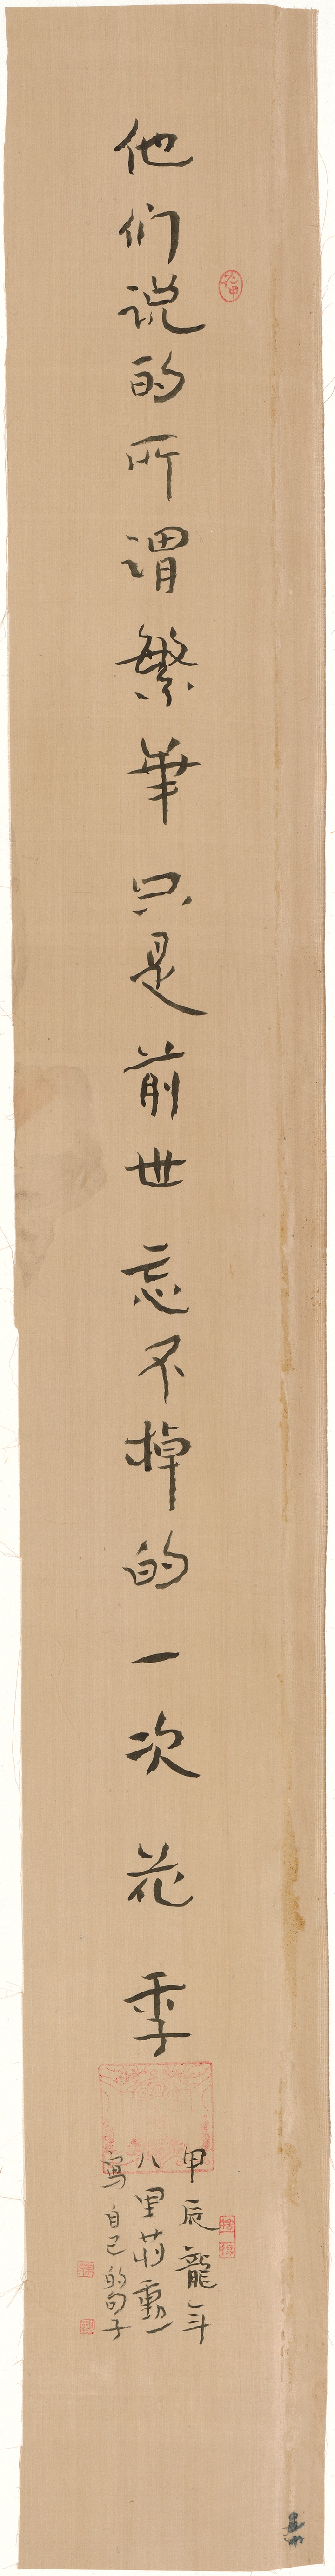 他们说的所谓繁華只是前世忘不掉的一次花季
甲辰龍年
八里蒋勳
寫自己的句子